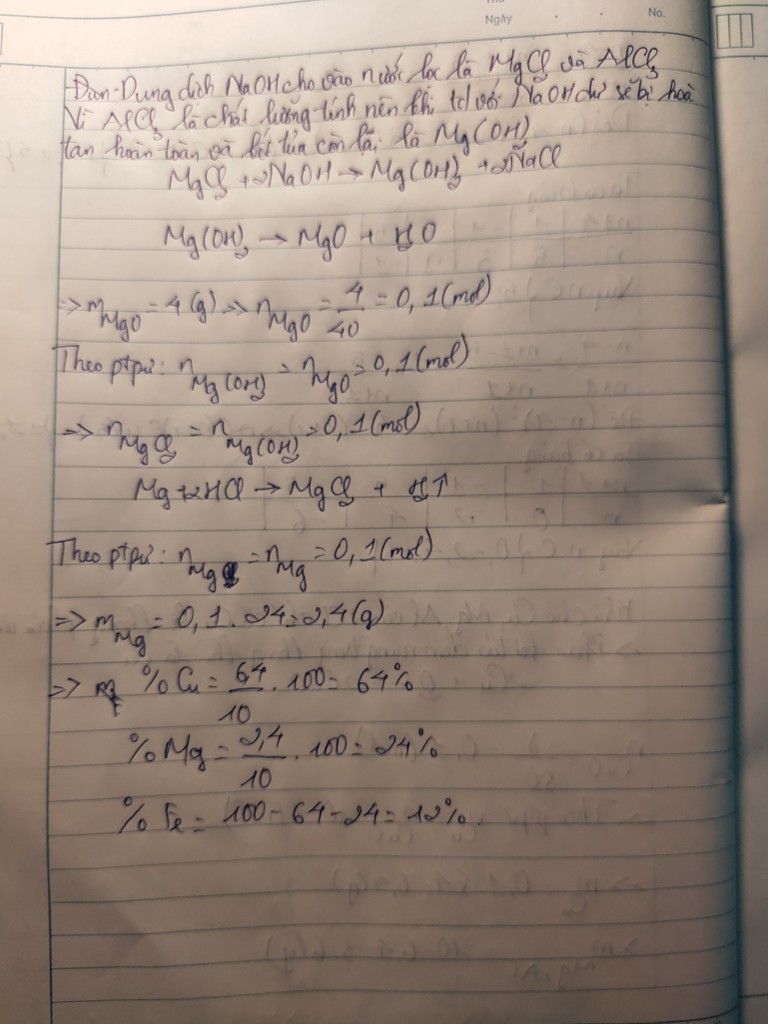 No.
Ngày
Đem Dung dịch NaOH cho vào nước lọc là MgCl2 và AlCl3
Vì AlCl3 là chất lưỡng tính nên khi td với NaOH dư sẽ bị hoà
tan hoàn toàn và kết tủa còn lại là Mg(OH)2
MgCl2 + 2NaOH → Mg(OH)2 + 2NaCl
Mg(OH)2 → MgO + H2O
=> mMgO = 4 (g) => nMgO = 4/40 = 0,1 (mol)
Theo ptpứ: nMg(OH)2 = nMgO = 0,1 (mol)
=> nMgCl2 = nMg(OH)2 = 0,1 (mol)
Mg + 2HCl → MgCl2 + H2↑
Theo ptpứ: nMgCl2 = nMg = 0,1 (mol)
=> mMg = 0,1 . 24 = 2,4 (g)
=> % Cu = 6,4/10 . 100 = 64%
% Mg = 2,4/10 . 100 = 24%
% Fe = 100 - 64 - 24 = 12%.